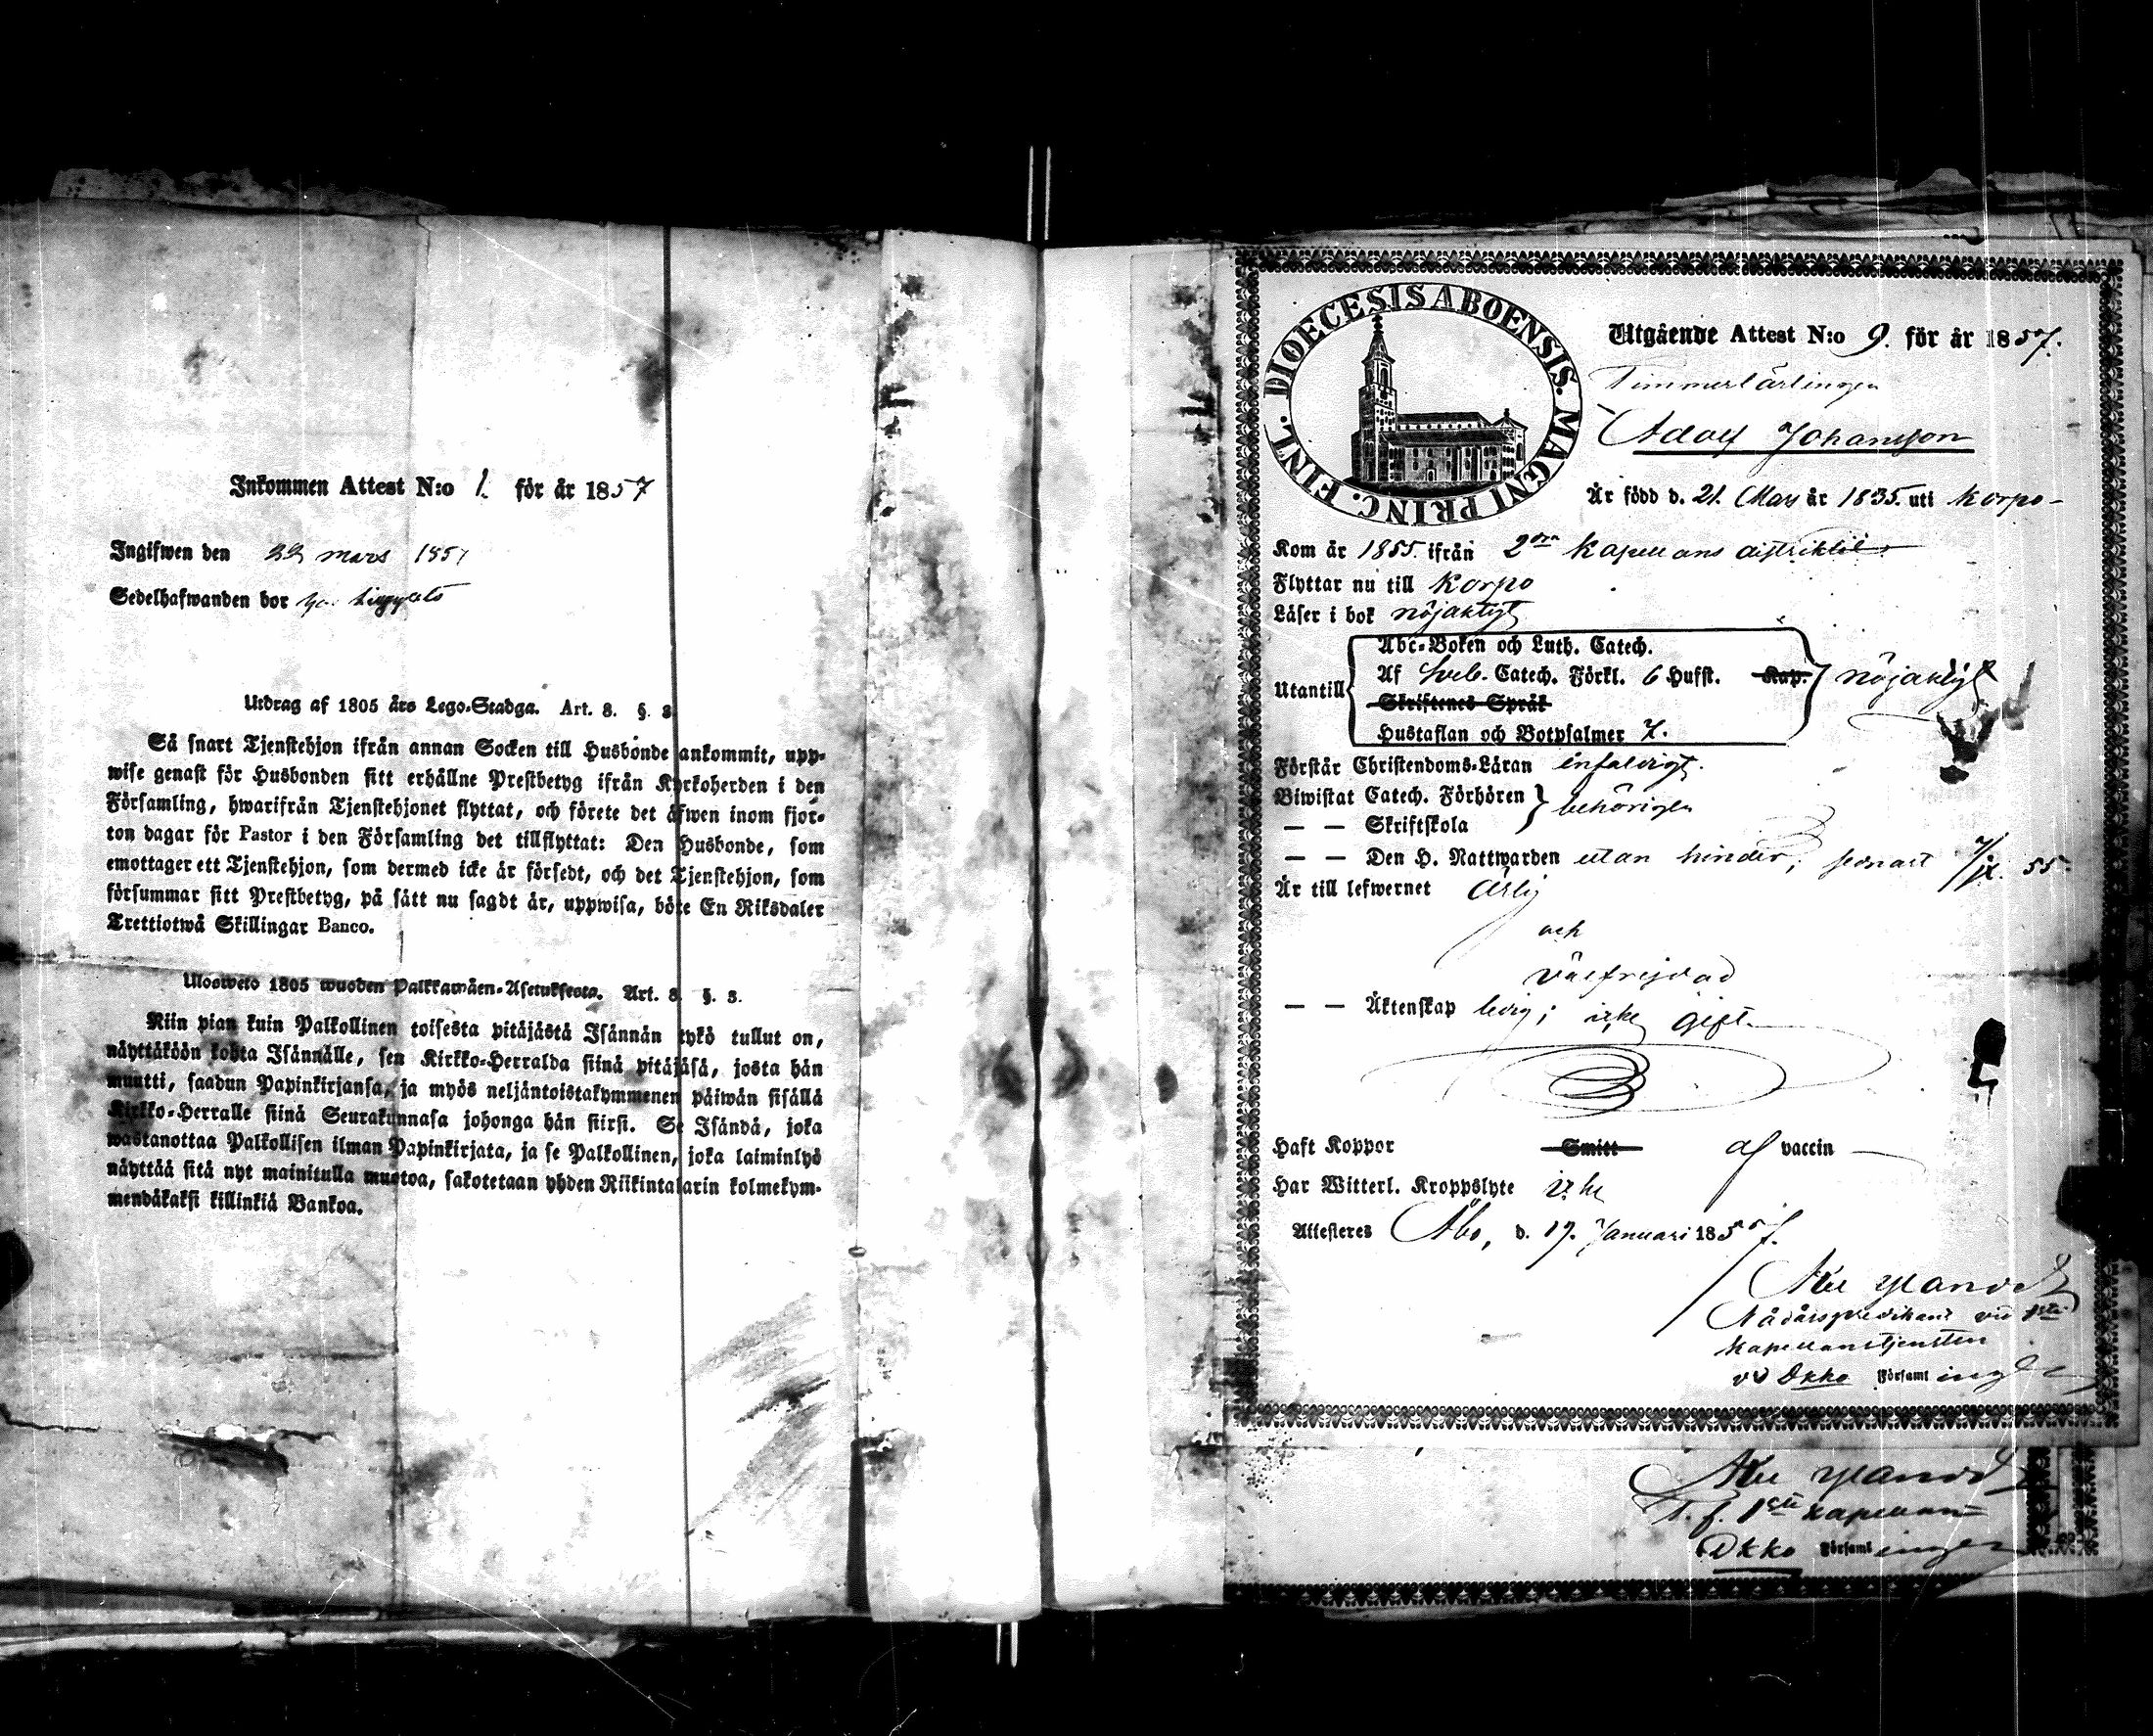 Inkommen Attest N:o 1. för år 1857
Ingifwen den 22 mars 1857
Sedelhafwanden bor
Utdrag af 1805 års Lego-Stadga. Art. 8. §. 3
Så snart Tjenstehjon ifrån annan Socken till Husbonde ankommit, upp-
wise genast för Husbonden sitt erhållne Prestbetyg ifrån Kyrkoherden i den
Församling, hwarifrån Tjenstehjonet flyttat, och förete det äfwen inom fjor-
ton dagar för Pastor i den Församling det tillflyttat: Den Husbonde, som
emottager ett Tjenstehjon, som dermed icke är försedt, och det Tjenstehjon, som
försummar sitt Prestbetyg, på sätt nu sagdt är, uppwisa, böte En Riksdaler
Trettiotwå Skillingar Banco.
Ulosweto 1805 wuoden Palkkawäen-Asetuksesta. Art. 8 §. 3.
Niin pian kuin Palkollinen toisesta pitäjästä Isännän tykö tullut on,
näyttäköön kohta Isännälle, sen Kirkko-Herralda siinä pitäjäsä, josta hän
muutti, saadun Papinkirjansa, ja myös neljäntoistakymmenen päiwän sisällä
Kirkko-Herralle siinä Seurakunnasa johonga hän siirsi. Se Isändä, joka
wastanottaa Palkollisen ilman Papinkirjata, ja se Palkollinen, joka laiminlyö
näyttää sitä nyt mainitulla muotoa, sakotetaan yhden Riikintalarin kolmekym-
mendäkaksi killinkiä Bankoa.
DIOECESIS ABOENSIS. MAGNI PRINC. FINL.
Utgående Attest N:o 9. för år 1857.
Timmerlärlingen
Adolf Johansson
Är född d. 21. Mars år 1835. uti Korpo
Kom år 1855. ifrån 2dra Kapellans distriktet
Flyttar nu till Korpo
Läser i bok nöjaktigt
Utantill
Abc-Boken och Luth. Catech.
Af Sveb. Catech. Förkl. 6 Hufst. Kap. nöjaktigt
Skriftenes Språk
Hustaflan och Botpsalmer 7.
Förstår Christendoms-Läran enfaldigt.
Biwistat Catech. Förhören behörigen
— — Skriftskola
— — Den H. Nattwarden utan hinder; senast 7/IX. 55.
Är till lefwernet Ärlig
och
välfrejdad
— — Äktenskap ledig; icke gift
Haft Koppor Smitt af vaccin
Har Witterl. Kroppslyte icke
Attesteres Åbo, d. 17. Januari 1857.
Nådårspredikant vid 1sta
Kapellanstjensten
vid Dkko Församlingen
T. f. 1ste Kapellan
Dkko Församlingen